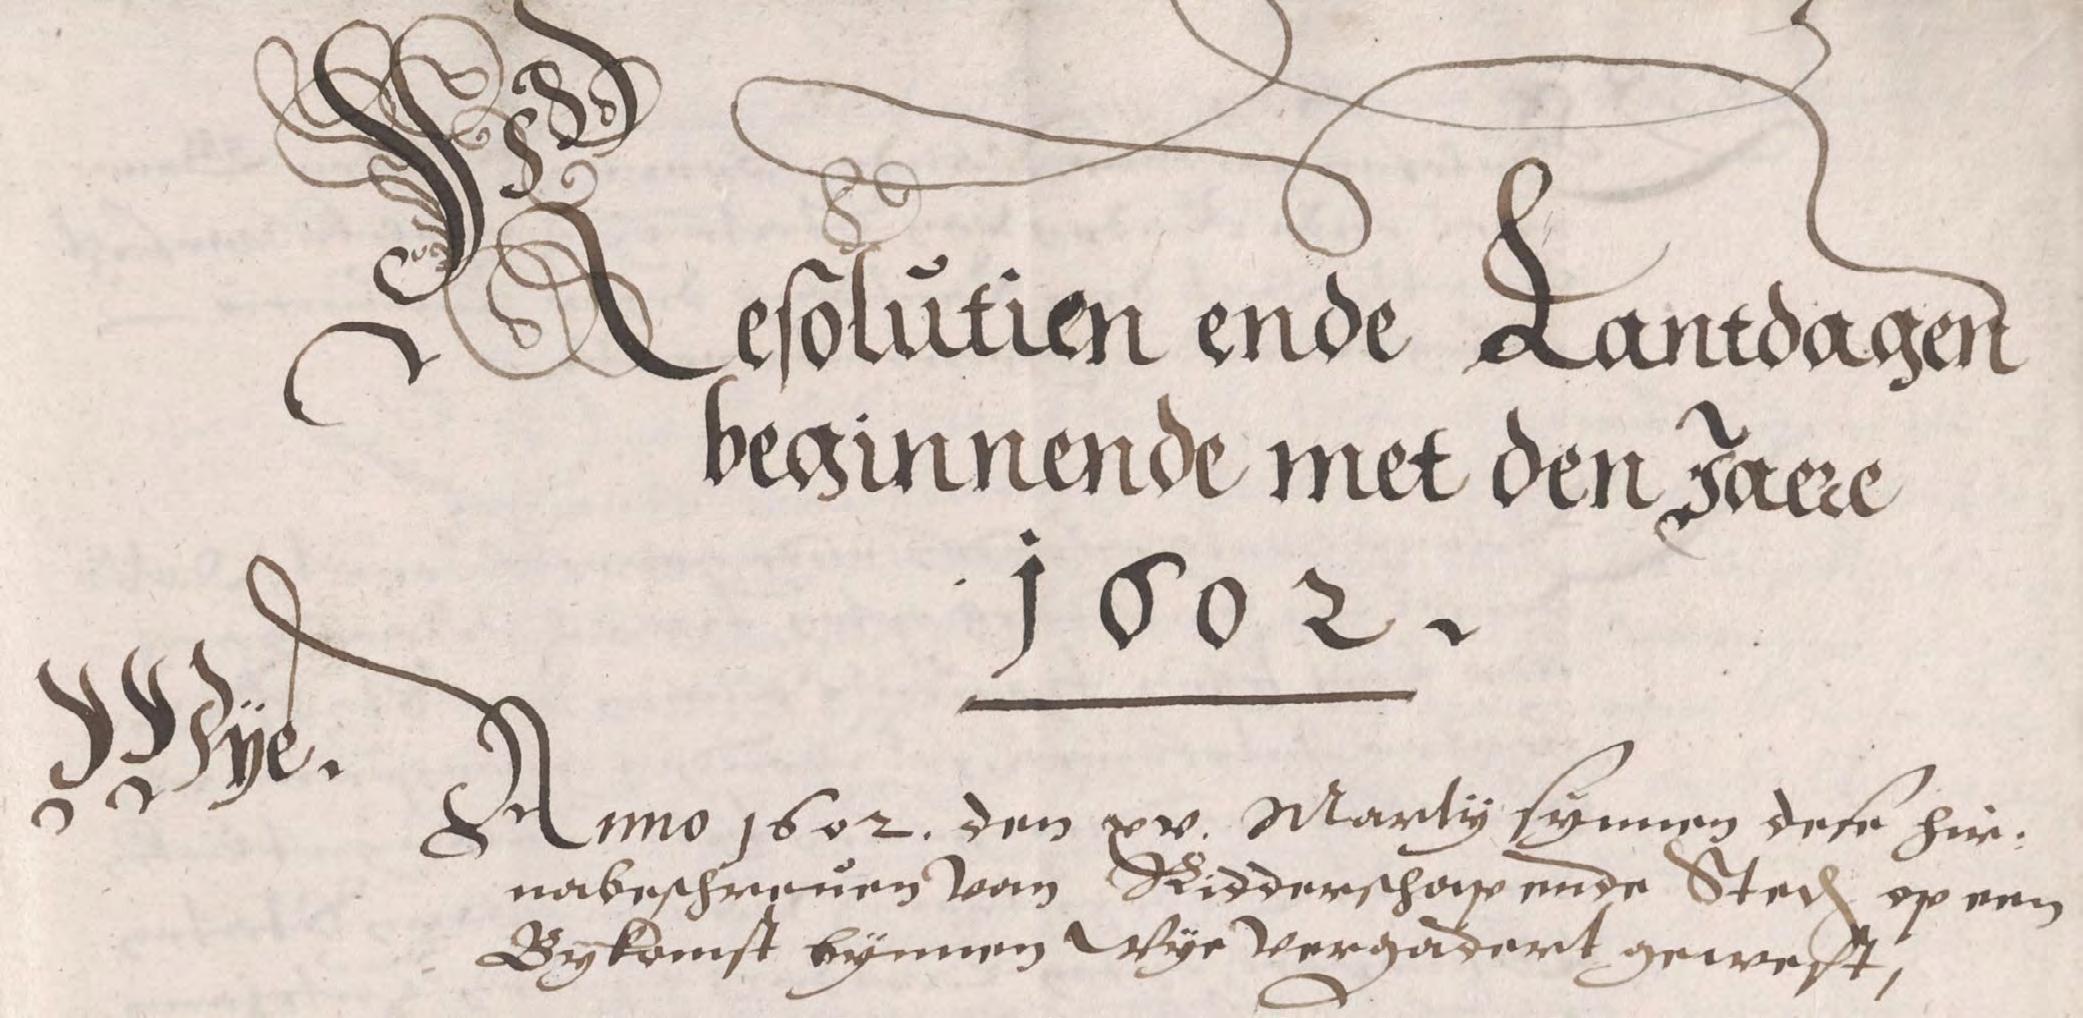 Resolutien ende Lantdagen
beginnende met den Jaere
1602.
Wÿe.
Anno 1602. den xv. Martÿ synnen dese hir:
nabeschreuen van Ridderschap ende Sted op een
Bykomst bÿnnen Wÿe vergadert gewest,